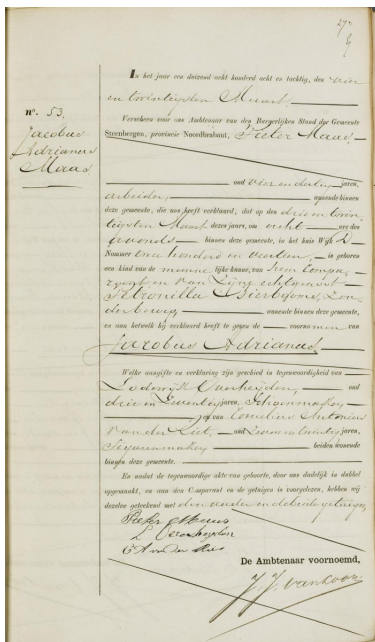 27
n°. 53.
Jacobus
Adrianus
Maas
In het jaar een duizend acht honderd acht en tachtig, den vier
en twintigsten Maart.
Verscheen voor ons Ambtenaar van den Burgerlijken Stand der Gemeente
Steenbergen, provincie Noordbrabant, Pieter Maas,
oud vier en dertig jaren,
arbeider, wonende binnen
deze gemeente, die ons heeft verklaard, dat op den drie en twin-
tigsten Maart dezes jaars, om acht ure des
avonds binnen deze gemeente, in het huis Wijk
Nommer twee honderd en veertien, is geboren
een kind van de mannelijke kunne, van hem Compa-
rant en van zijne echtgenoot
Petronilla Zon-
der beroep, wonende binnen deze gemeente,
en aan hetwelk hij verklaard heeft te geven de voornamen van
Jacobus Adrianus.
Welke aangifte en verklaring zijn geschied in tegenwoordigheid van
Lodewijk Vanheijden, oud
drie en zeventig jaren, Schoenmaker
en van Cornelis Antonius
van der Riet, oud jaren,
Sigarenmaker beiden wonende
binnen deze gemeente.
En nadat de tegenwoordige akte van geboorte, door ons dadelijk in dubbel
opgemaakt, en aan den Comparant en de getuigen is voorgelezen, hebben wij
dezelve geteekend met den vader en de beide getuigen,
Pieter Maas
L Vanheijden
C A van der Riet
De Ambtenaar voornoemd,
J. J. van Loon